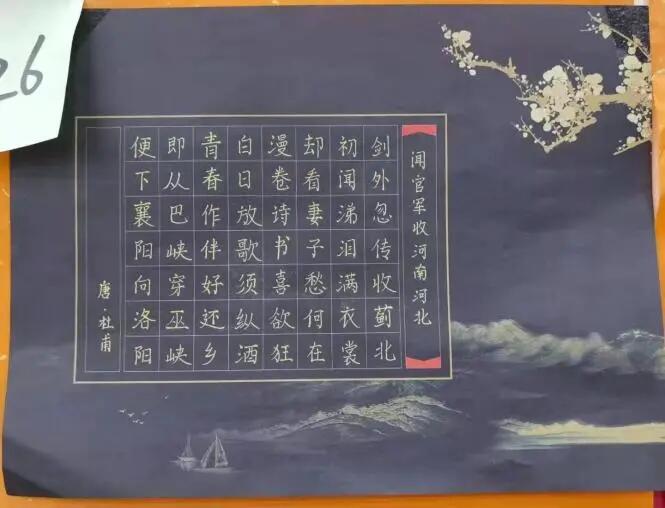 闻官军收河南河北
剑外忽传收蓟北
初闻涕泪满衣裳
却看妻子愁何在
漫卷诗书喜欲狂
白日放歌须纵酒
青春作伴好还乡
即从巴峡穿巫峡
便下襄阳向洛阳
唐·杜甫
26